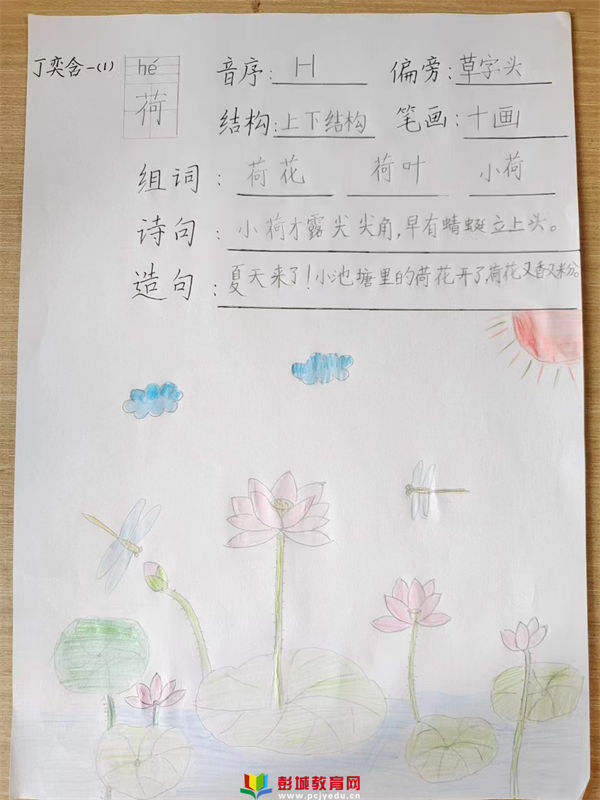 丁奕含一(1) hé 音序: H 偏旁: 草字头
荷 结构: 上下结构 笔画: 十画
组词: 荷花 荷叶 小荷
诗句: 小荷才露尖尖角,早有蜻蜓立上头。
造句: 夏天来了!小池塘里的荷花开了,荷花又香又粉。
彭城教育网
www.pcjyedu.cn